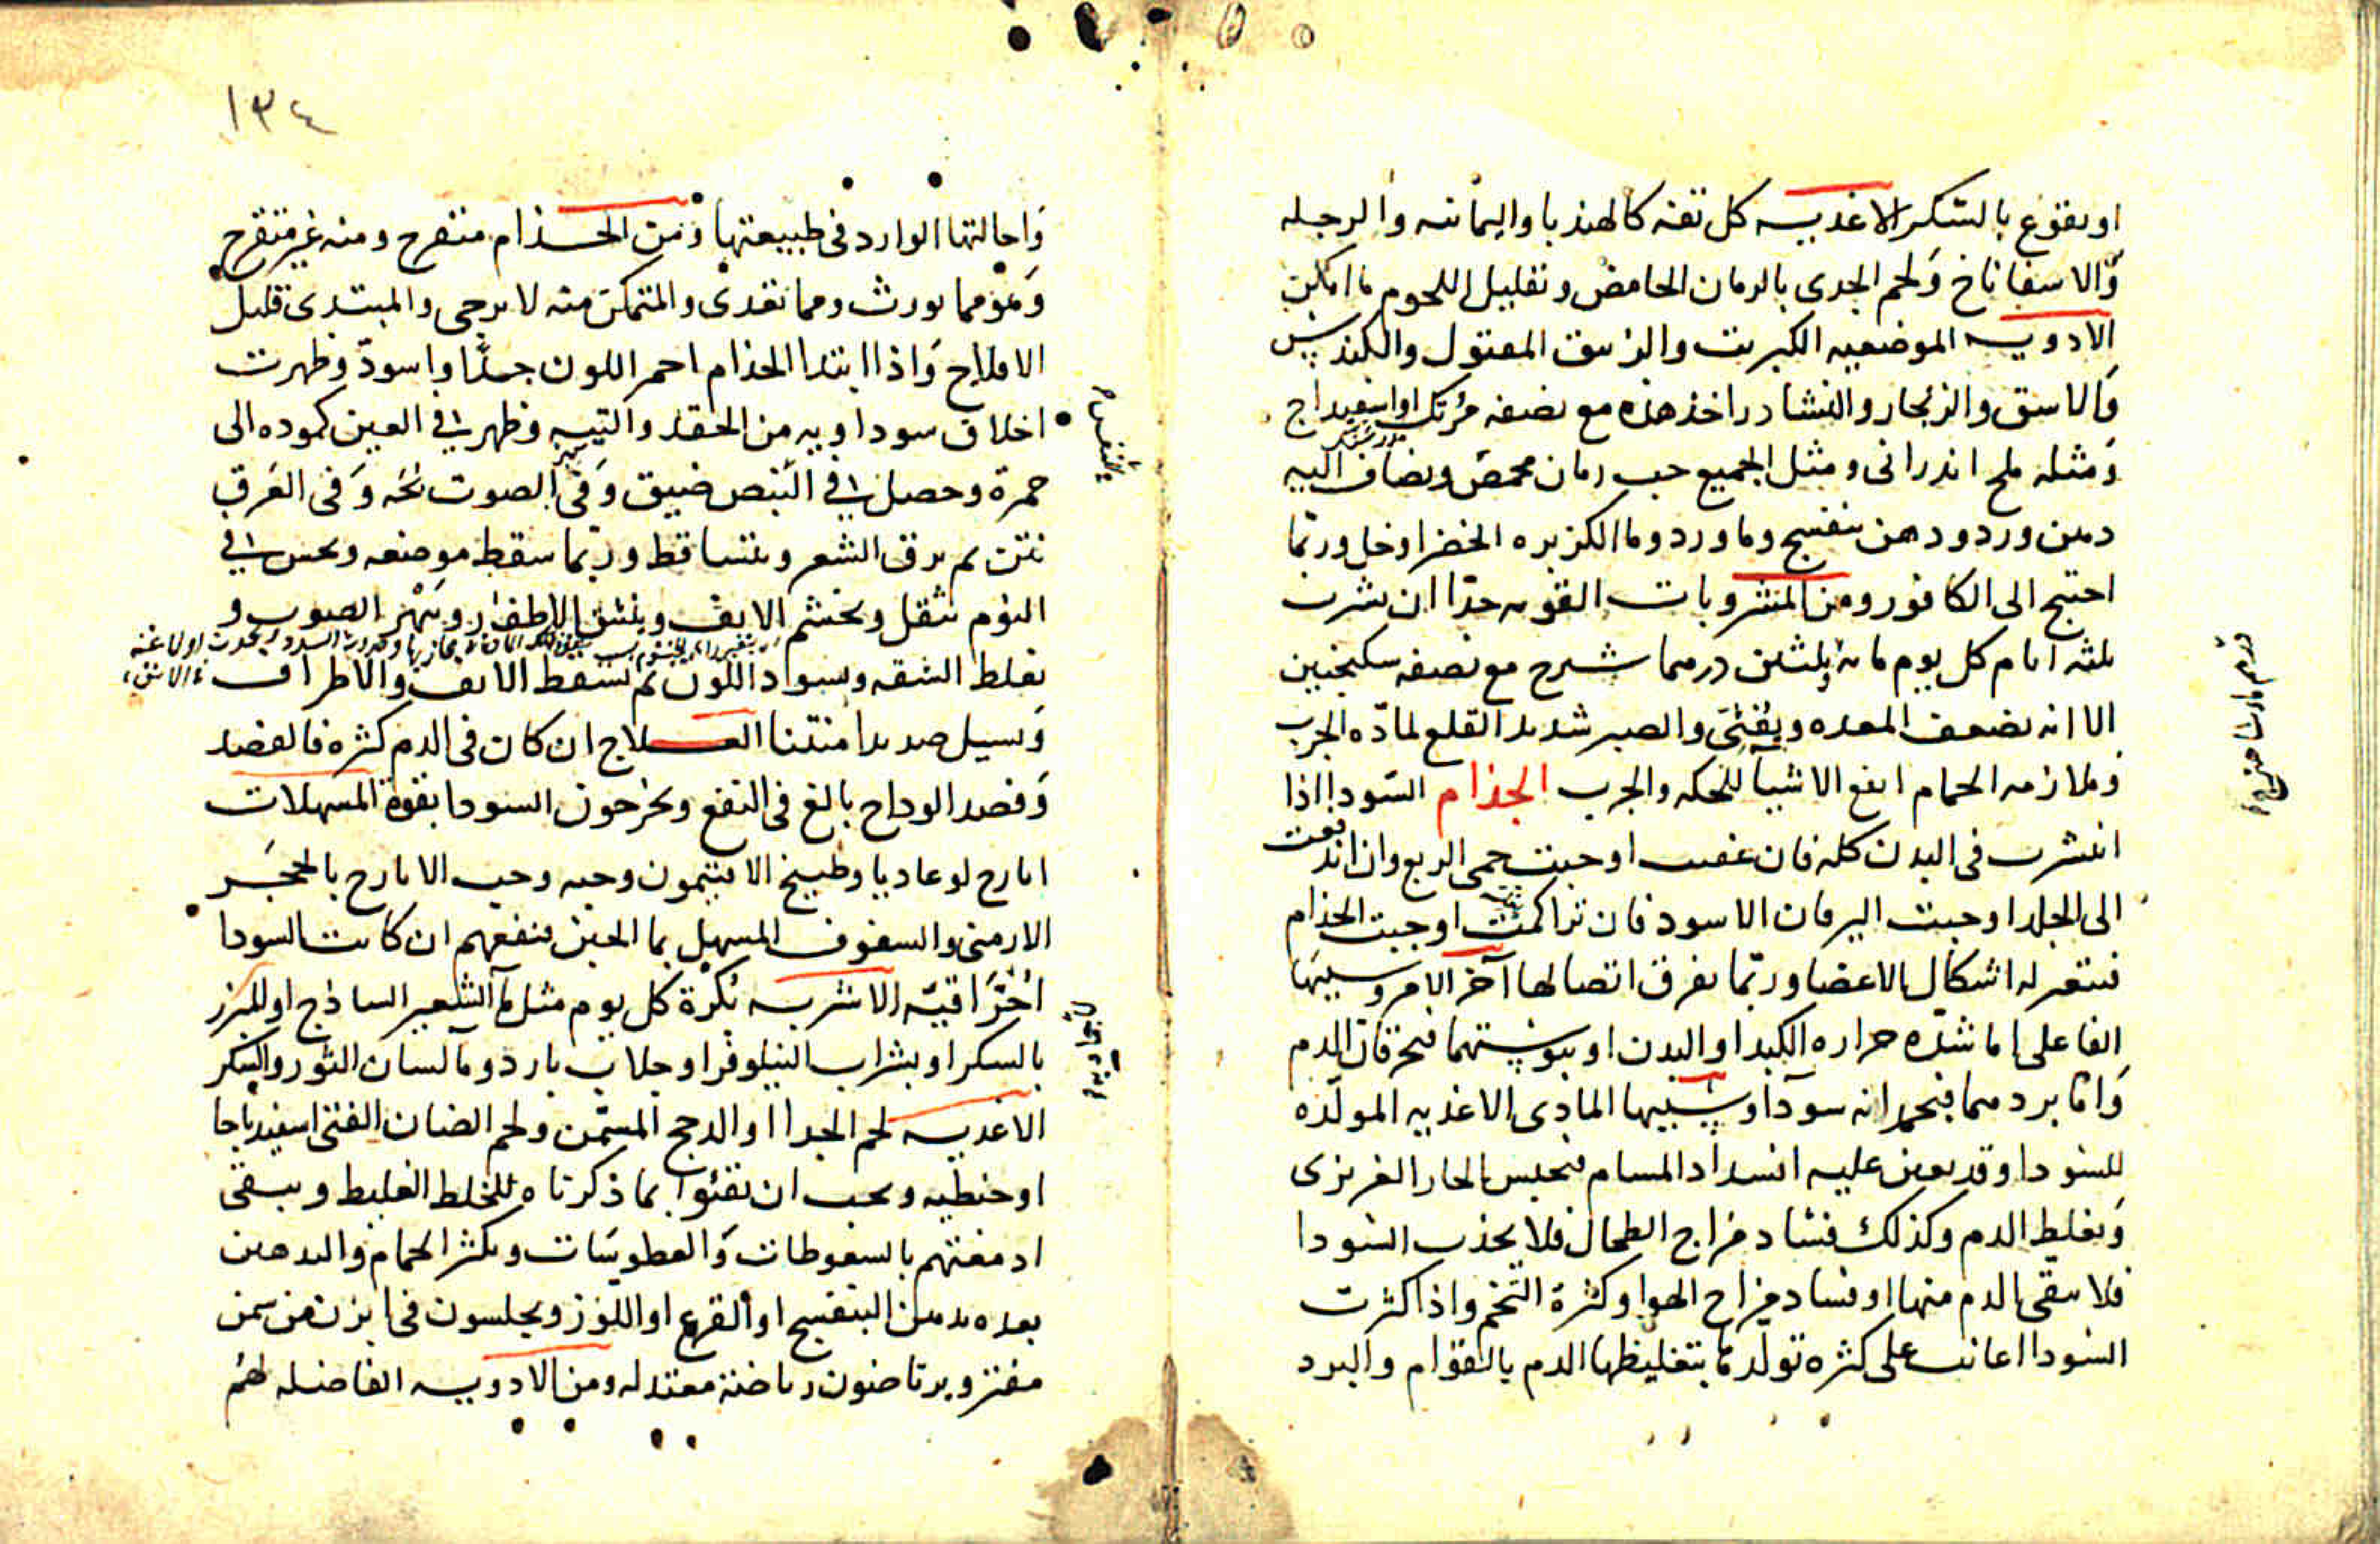 او بقوع بالسكر الاغدية كل تفه كالهندبا واليمانيه والرجله
والاسفاناخ ولحم الجدى بالرمان الحامض وتقليل اللحوم ما امكن
الادوية الموضعيه الكبريت والزيبق المقتول والكندس
والاشق والزنجار والنشادر اخذ هذه مع نصفه مرتك او اسفيداج
ومثله ملح اندرانى ومثل الجميع حب رمان محمص ويضاف اليه
دهن ورد ودهن بنفسج وماورد وما الكزبره الخضرا وخل وربما
احتيج الى الكافور ومن المشروبات القويه جدا ان يشرب
ثلثه ايام كل يوم مايه وثلثين درهما شيرج مع نصفه سكنجبين
الا انه يضعف المعده ويغثى والصبر شديد القلع لمادّه الجرب
وملازمه الحمام انفع الاشيا للحكه والجرب الجذام السّودا اذا
انتشرت فى البدن كله فان عفنت اوجبت حمى الربع وان اندفعت
الى الجلد اوجبت اليرقان الاسود فان تراكمت اوجبت الجذام
فتتغير له اشكال الاعضا وربما تفرق اتصالها آخر الامر وسببها
الفاعلى اما شدّه حراره الكبد او البدن او يبوستهما فتحرقان الدم
واما بردهما فيجمدانه سودآ وسببها المادى الاغذيه المولّده
للسودا وقد يعين عليه انسداد المسام فيحبس الحار الغريزى
ويغليظ الدم وكذلك فساد مزاج الطحال فلا يجذب السودا
فلا ينقى الدم منها او فساد مزاج الهوا وكثرة التخم واذا كثرت
السودا اعانت على كثره تولّدها بتغليظها الدم بالقوام والبرد
١٣٤
واحالتها الوارد فى طبيعتها ومن الجذام متقرح ومنه غير متقرح
وهو مما يورث ومما تعدى والمتمكن منه لا يرجى والمبتدى قليل
الافلاح واذا ابتدا الجذام احمر اللون جدّا واسودّ وظهرت
اخلاق سوداويه من الحقد والتيه وظهر فى العين كموده الى
حمرة وحصل فى النبض ضيق وفى الصوت بحّه وفى العَرق
نتن ثم يرق الشعر ويتساقط وربما سقط موضعه ويحس فى
النوم بثقل ويخشم الانف وينشق الاظفار الصوت و
تغلظ الشفه ويسود اللون ثم يسقط الانف والاطراف
ويسيل صديدا منتنا العلاج ان كان فى الدم كثره فالفصد
وفصد الوداج بالغ فى النفع ويخرجون السودا بقوة المسهلات
ايارج لوغاديا وطبيخ الافتيمون وحبه وحب الايارج بالحجر
الارمنى والسفوف المسهل بما الجبن ينفعهم ان كانت السودا
احتراقيّه الاشربه بكرة كل يوم مثل ما آلشعير الساذج او المبزر
بالسكر او بشراب النيلوفر او جلاب بارد وما لسان الثور والسكر
الاغديه لحم الجدا او الدجج المسمّن ولحم الضان الفتى اسفيدباجا
او حنطيه ويجب ان تقيئوا بما ذكرناه للخلط الغليظ وينقى
ادمغتهم بالسعوطات والعطوسات ويكثر الحمام والتدهين
بعده بدهن البنفسج او القرع او اللوز ويجلسون فى ابزن من سمن
مفتر ويرتاضون رياضة معتدله ومن الادويه الفاضله لهم